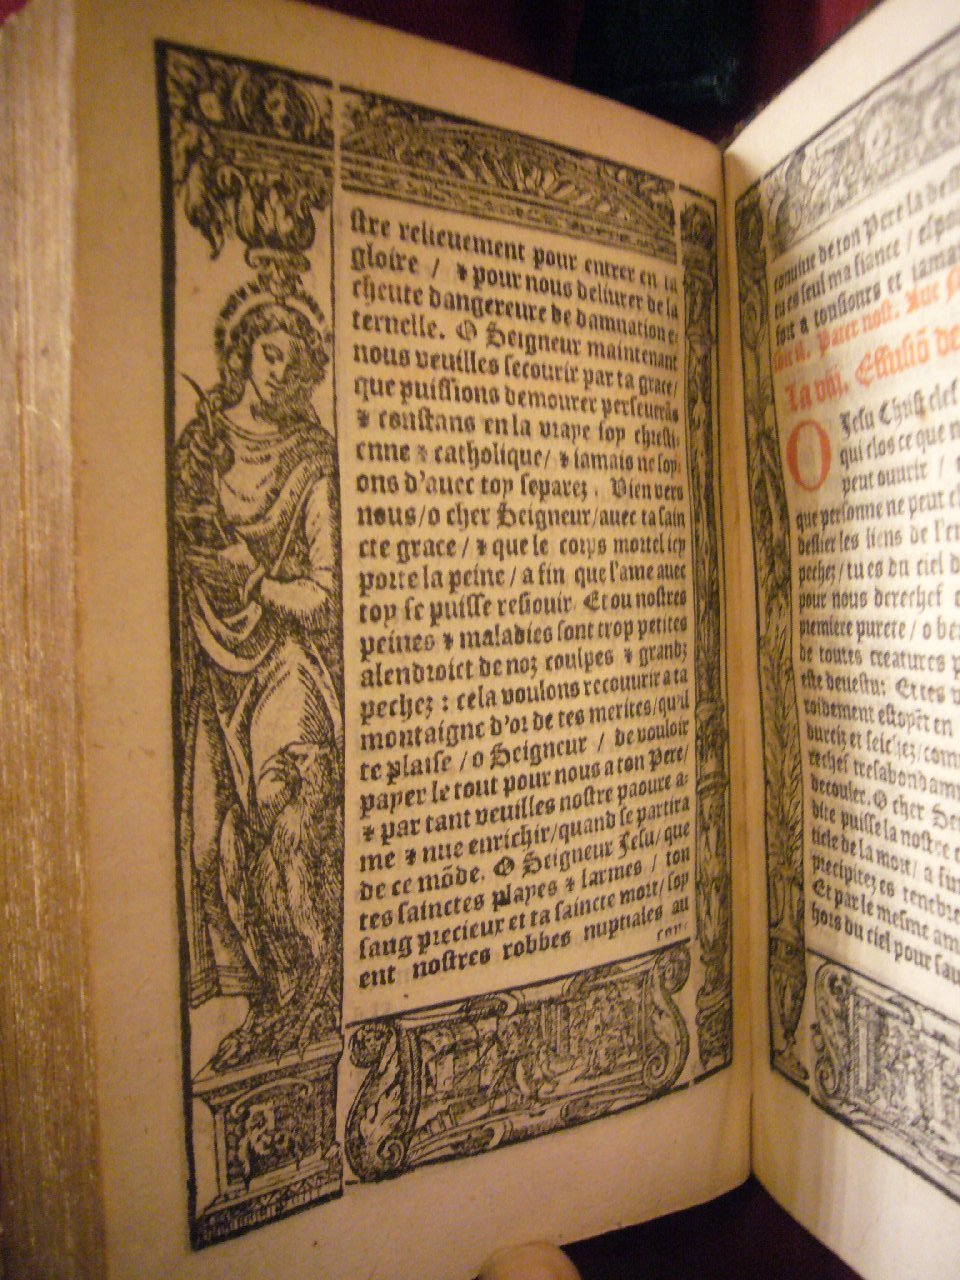 stre relievement pour entrer en ta
gloire / & pour nous delivrer de la
cheute dangereuse de damnation e-
ternelle. O Seigneur maintenant
nous veuilles secourir par ta grace/
que puissions demourer perseverãs
& constans en la vraye foy chresti-
enne & catholique/ & iamais ne soy-
ons d'avec toy separez. Vien vers
nous/o cher Seigneur/avec ta sain
cte grace/ & que le corps mortel icy
porte la peine/a fin que l'ame avec
toy se puisse resiouir. Et ou nostres
peines & maladies sont trop petites
alendroict de noz coulpes & grandz
pechez : cela voulons recouurir a ta
montaigne d'or de tes merites/qu'il
te plaise/o Seigneur / de vouloir
payer le tout pour nous a ton Pere/
& par tant veuilles nostre paoure a-
me & nue enrichir/quand se partira
de ce mõde. O Seigneur Jesu/que
tes sainctes playes & larmes / ton
sang precieux et ta saincte mort/soy
ent nostres robbes nuptiales au
conv-
convive de ton Pere la dess
tu es seul ma fiance / espo
soit a tousiours et iama
soit il. Pater nost. Ave M
La viij. Effusiõ de
O Jesu Christ clef
qui clos ce que n
peut ouvrir /
que personne ne peut
deslier les liens de l'en
pechez/tu es du ciel d
pour nous derechef
premiere purete / o be
de toutes creatures p
esté devestu: Et tes v
roidement estopẽt en
durcis et seichez/com
rechef tresabondamm
decouler. O cher Se
dite puisse la nostre
ticle de la mort/ a fin
precipitez es tenebre
Et par le mesme am
hors du ciel pour sau